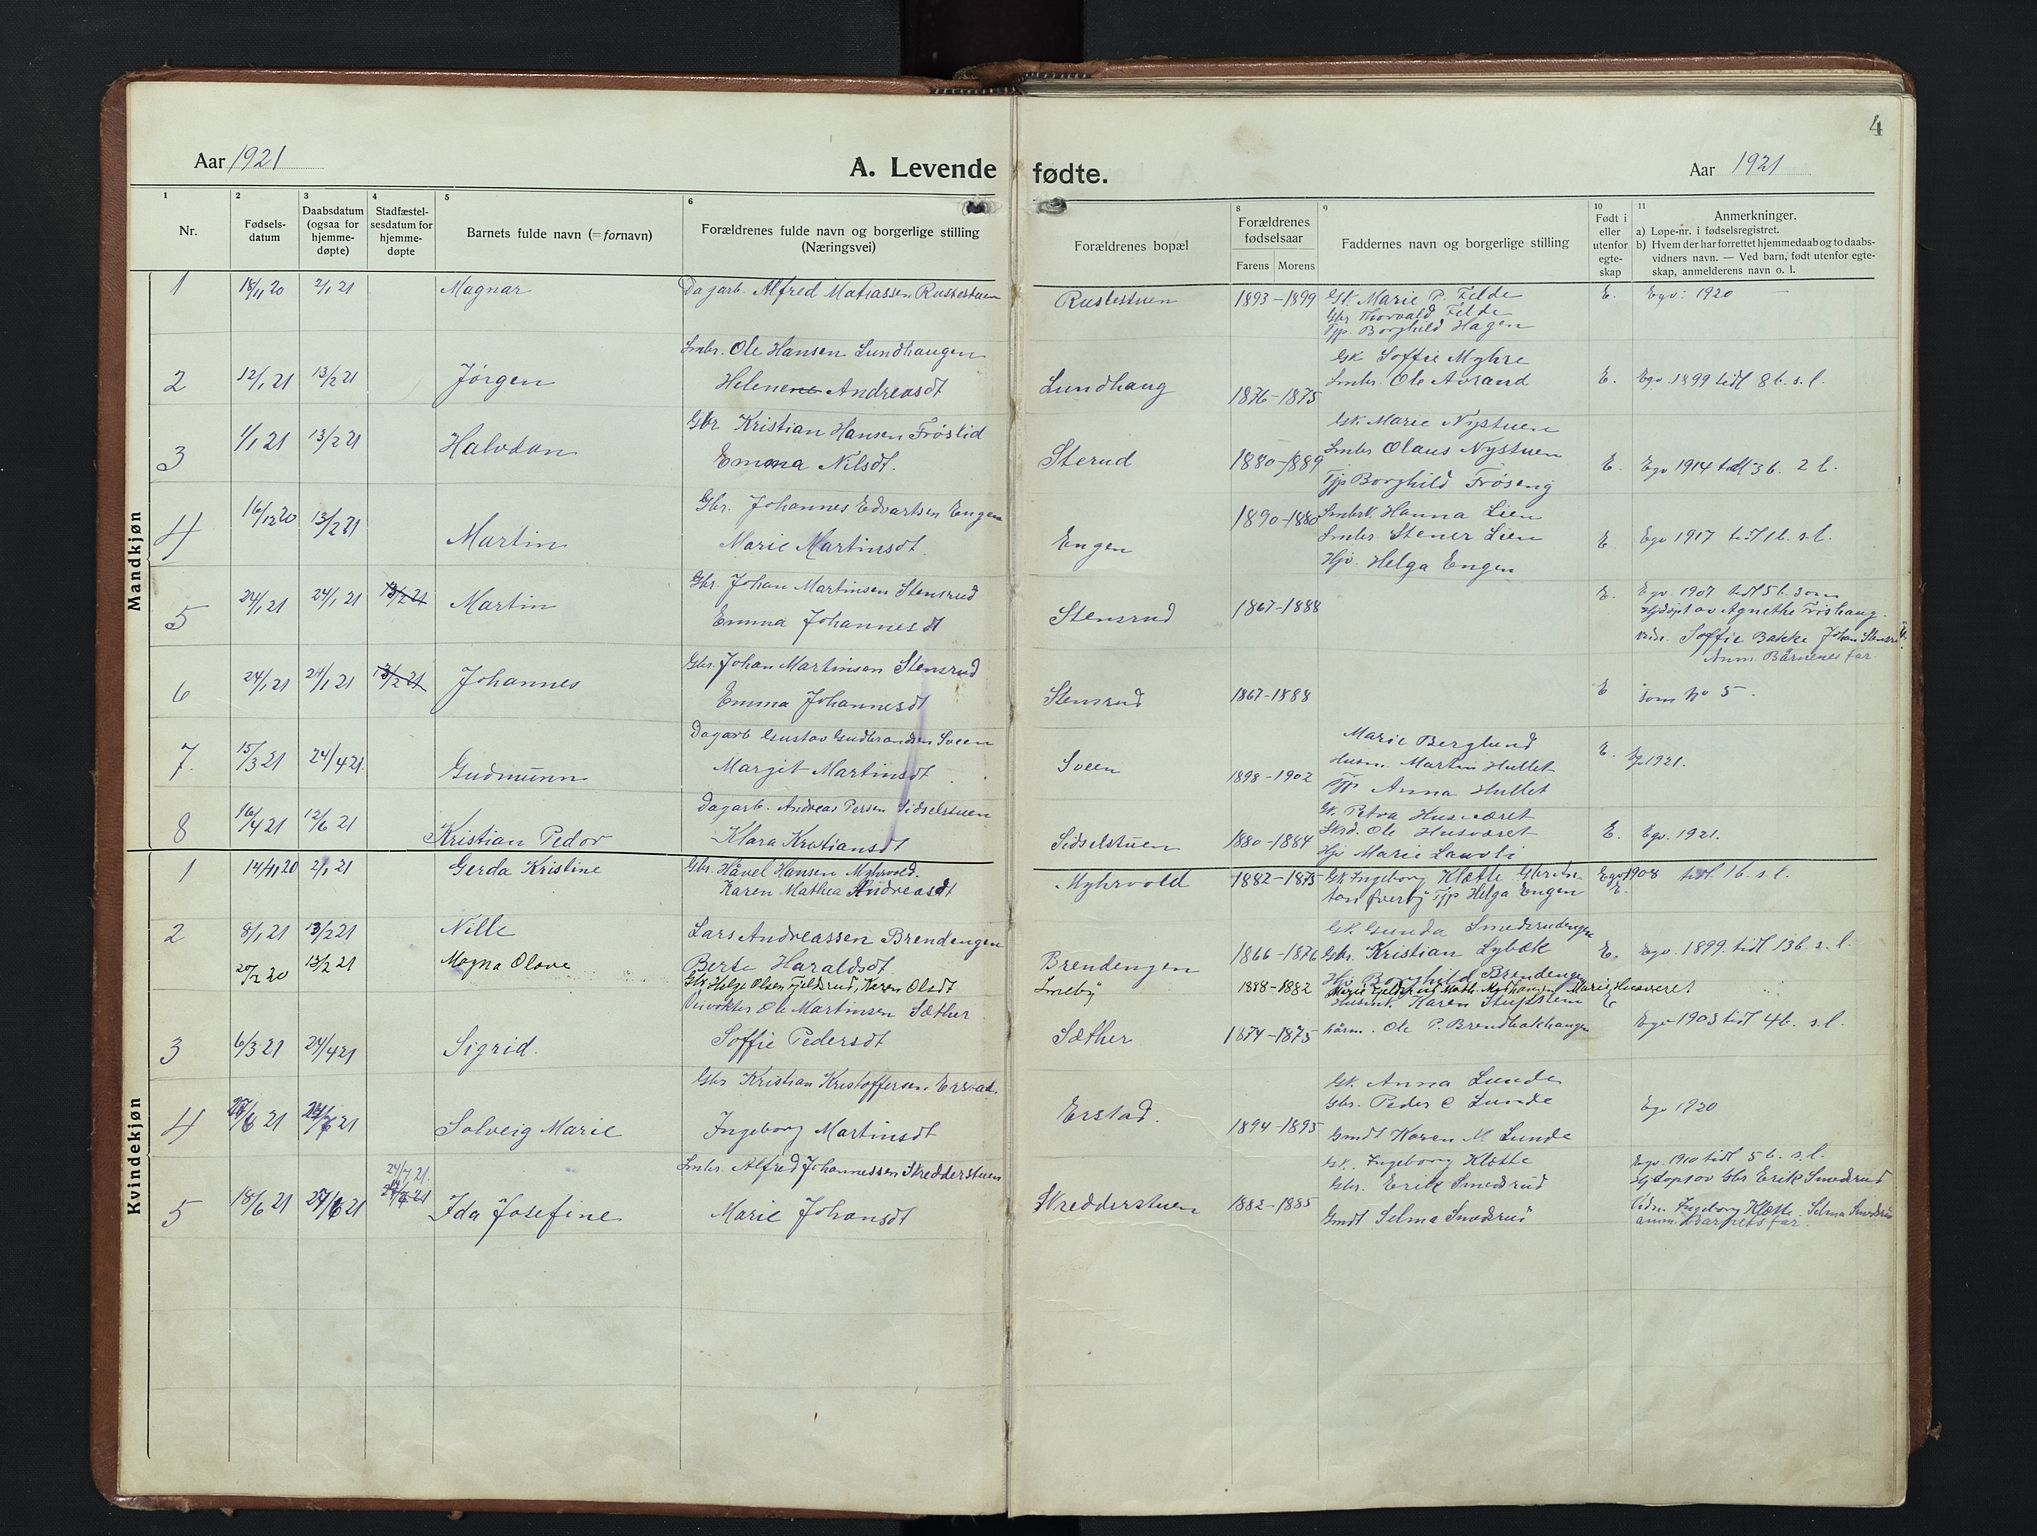 4
Aar 1921
A. Levende fødte.
Aar 1921
1 2 3 4 5 6 8 9 10 11
Nr.
Fødsels-
datum
Daabsdatum
(ogsaa for
hjemme-
døpte)
Stadfæstel-
sesdatum for
hjemme-
døpte
Barnets fulde navn (= fornavn)
Forældrenes fulde navn og borgerlige stilling
(Næringsvei)
Forældrenes bopæl
Forældrenes
fødselsaar
Farens Morens
Faddernes navn og borgerlige stilling
Født i
eller
utenfor
egte-
skap
Anmerkninger.
a) Løpe-nr. i fødselsregistret.
b) Hvem der har forrettet hjemmedaab og to daabs-
vidners navn. — Ved barn, født utenfor egte-
skap, anmelderens navn o. l.
Mandkjøn
1 18/11 20 2/1 21 Magnar Dagarb. Alfred Matiassen Rustestuen Rustestuen 1893-1899 Gk Marie P. Filde E. Egv: 1920
Gbr Thorvald Filde
Tjp Borghild Hagen
Smbr. Ole Hansen Lundhaugen Gk Soffie Myhre
2 12/1 21 13/2 21 Jørgen Helene Andreasdt Lundhaug 1876-1875 Smbr. Ole Aurand E. Egv 1899 tidl 8 b. s. l.
Gbr Kristian Hansen Frøslid Gk Marie Nystuen
3 1/1 21 13/2 21 Halvdan Emma Nilsdt. Sterud 1880-1889 Smbr Olaus Nystuen E. Egv 1914 tidl 3 b. 2 l.
Tjp Borghild Frøseng
Gbr. Johannes Edvartsen Engen Smbrk Hanna Lien
4 16/12 20 13/2 21 Martin Marie Martinsdt. Engen 1890-1880 Smbr Stener Lien E. Egv 1917 tidl 1 b. s. l.
Hjv. Helga Engen
Gbr. Johan Martinsen Stensrud
5 24/1 21 24/1 21 13/2 21 Martin Emma Johannesdt Stensrud 1867-1888 E. Egv 1907 tidl 5 b. som
hjdøpt av Agnethe Frøshaug.
vidn. Soffie Bakke Johan Stensrud
Anm. Barnenes far.
Gbr. Johan Martinsen Stensrud
6 24/1 21 24/1 21 13/2 21 Johannes Emma Johannesdt Stensrud 1867-1888 E som No 5.
Dagarb Gustav Gudbrandsen Sveen Marie Berglund
7. 15/3 21 24/4 21. Gudmunn Margit Martinsdt. Sveen 1898-1902 Husm. Martin Hullet E. 1921.
Tjp Anna Hullet
Dagarb. Andreas Persen Sidselstuen Gk. Petra Husværet
8 16/4 21 12/6 21 Kristian Pedor Klara Kristiansdt Sidselstuen 1880-1884 Ole Husværet E. Egv. 1921.
Hjv Marie Lauvli
Kvindekjøn
1 14/11 20 2/1 21 Gerda Kristine Gbr. Håvel Hansen Myhrvold. Myhrvold 1882-1875 Gk Ingeborg Kløtte Egv 1908 tidl. 1 b. s. l.
Karen Mathea Andreasdt Tjp Helga Engen E.
Gk. Gunda
2 8/1 21 13/2 21 Nille Lars Andreassen Brendengen Brendengen 1866-1876 Gbr. Kristian Lybæk E. Egv. 1899 tidl 13 b. s. l.
Berte Haraldsdt Hjv Borghild Brendengen
20/12 20 13/2 21 Magna Olave Gbr. Helge Olsen Fjeldsrud, Karen Olsdt Smeby 1888-1882
Ole Martinsen Sæther Karen E
3 6/3 21 24/4 21 Sigrid. Soffie Pedersdt Sæther 1874-1875 Ole P. Brendbakhaugen Egv 1903 tidl 4 b. s. l.
Gbr Kristian Kristoffersen Erstad. Gk. Anna Lunde
4 21 21 Solveig Marie Ingeborg Martinsdt Erstad. 1894-1895 Gbr. Peder C Lunde Egv 1920
Gmdt Karen M. Lunde
Smbr. Alfred Johannessen Skredderstuen Gk. Ingeborg Kløtte Egv. 1910 tidl 5 b. s. l.
24/7 21.
5 18/6 21 27/6 21 Ida Josefine Marie Johansdt Skredderstuen 1882-1885 Gbr. Erik Smedsrud Hjdøpt av Gbr Erik Smedsrud
Gmdt Selma Smedsrud Vidn. Ingeborg Kløtte. Selma Smedsrud
anm. Barnets far.